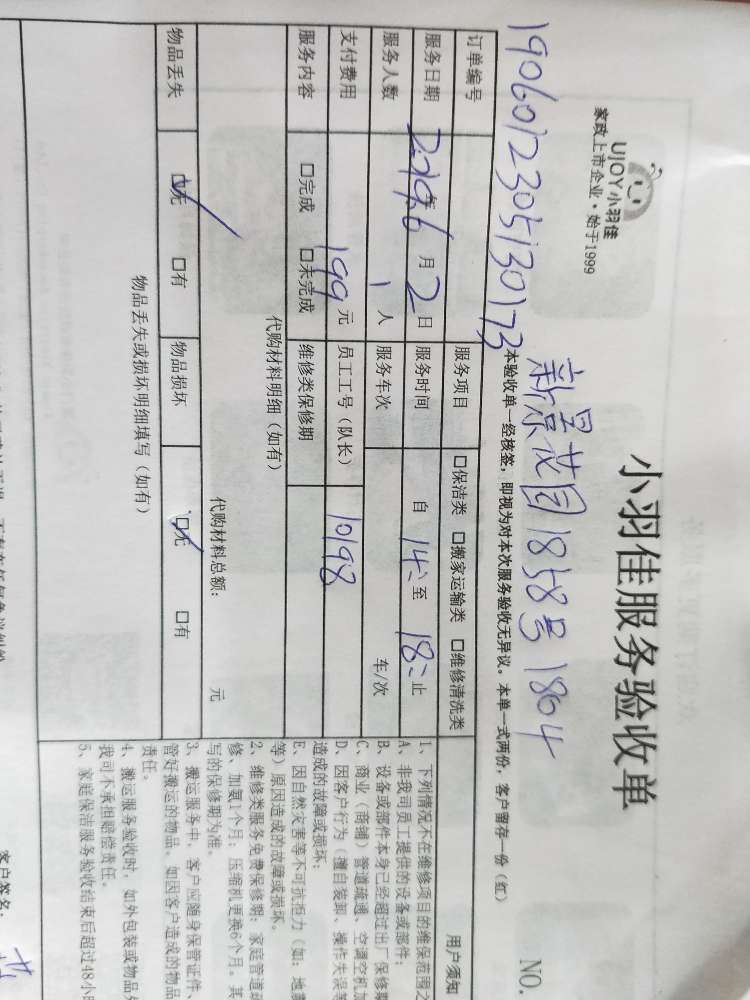 UJOY小羽佳
家政上市企业·始于1999
小羽佳服务验收单
NO.
1906012305130173
新景花园1858号1804
本验收单一经核签，即视为对本次服务验收无异议。本单一式两份，客户留存一份（红）
订单编号
服务项目 □保洁类 □搬家运输类 □维修清洗类
服务日期 2019年6月2日
服务时间 自 14: 至 18: 止
服务人数 1人
服务车次 车/次
支付费用 199元
员工工号（队长） 10198
服务内容 □完成 □未完成
维修类保修期
代购材料明细（如有）
代购材料总额： 元
物品丢失 □无 □有
物品损坏 □无 □有
物品丢失或损坏明细填写（如有）
用户须知
1、下列情况不在维修项目的维保范围之
A、非我司员工提供的设备或部件；
B、设备或部件本身已经超过出厂保修期
C、商业（商铺）管道疏通、空调空机加
D、因客户行为（擅自装卸、操作失误等
造成的故障或损坏；
E、因自然灾害等不可抗拒力（如：地震
等）原因造成的故障或损坏。
2、维修类服务免费保修期：家庭管道疏
修、加氨1个月；压缩机更换6个月。其
写的保修期为准。
3、搬运服务中，客户应随身保管证件、
管好搬运的物品。如因客户造成的物品
责任。
4、搬运服务验收时，如外包装或物品外
我司不承担赔偿责任。
5、家庭保洁服务验收结束后超过48小时
客户签名：